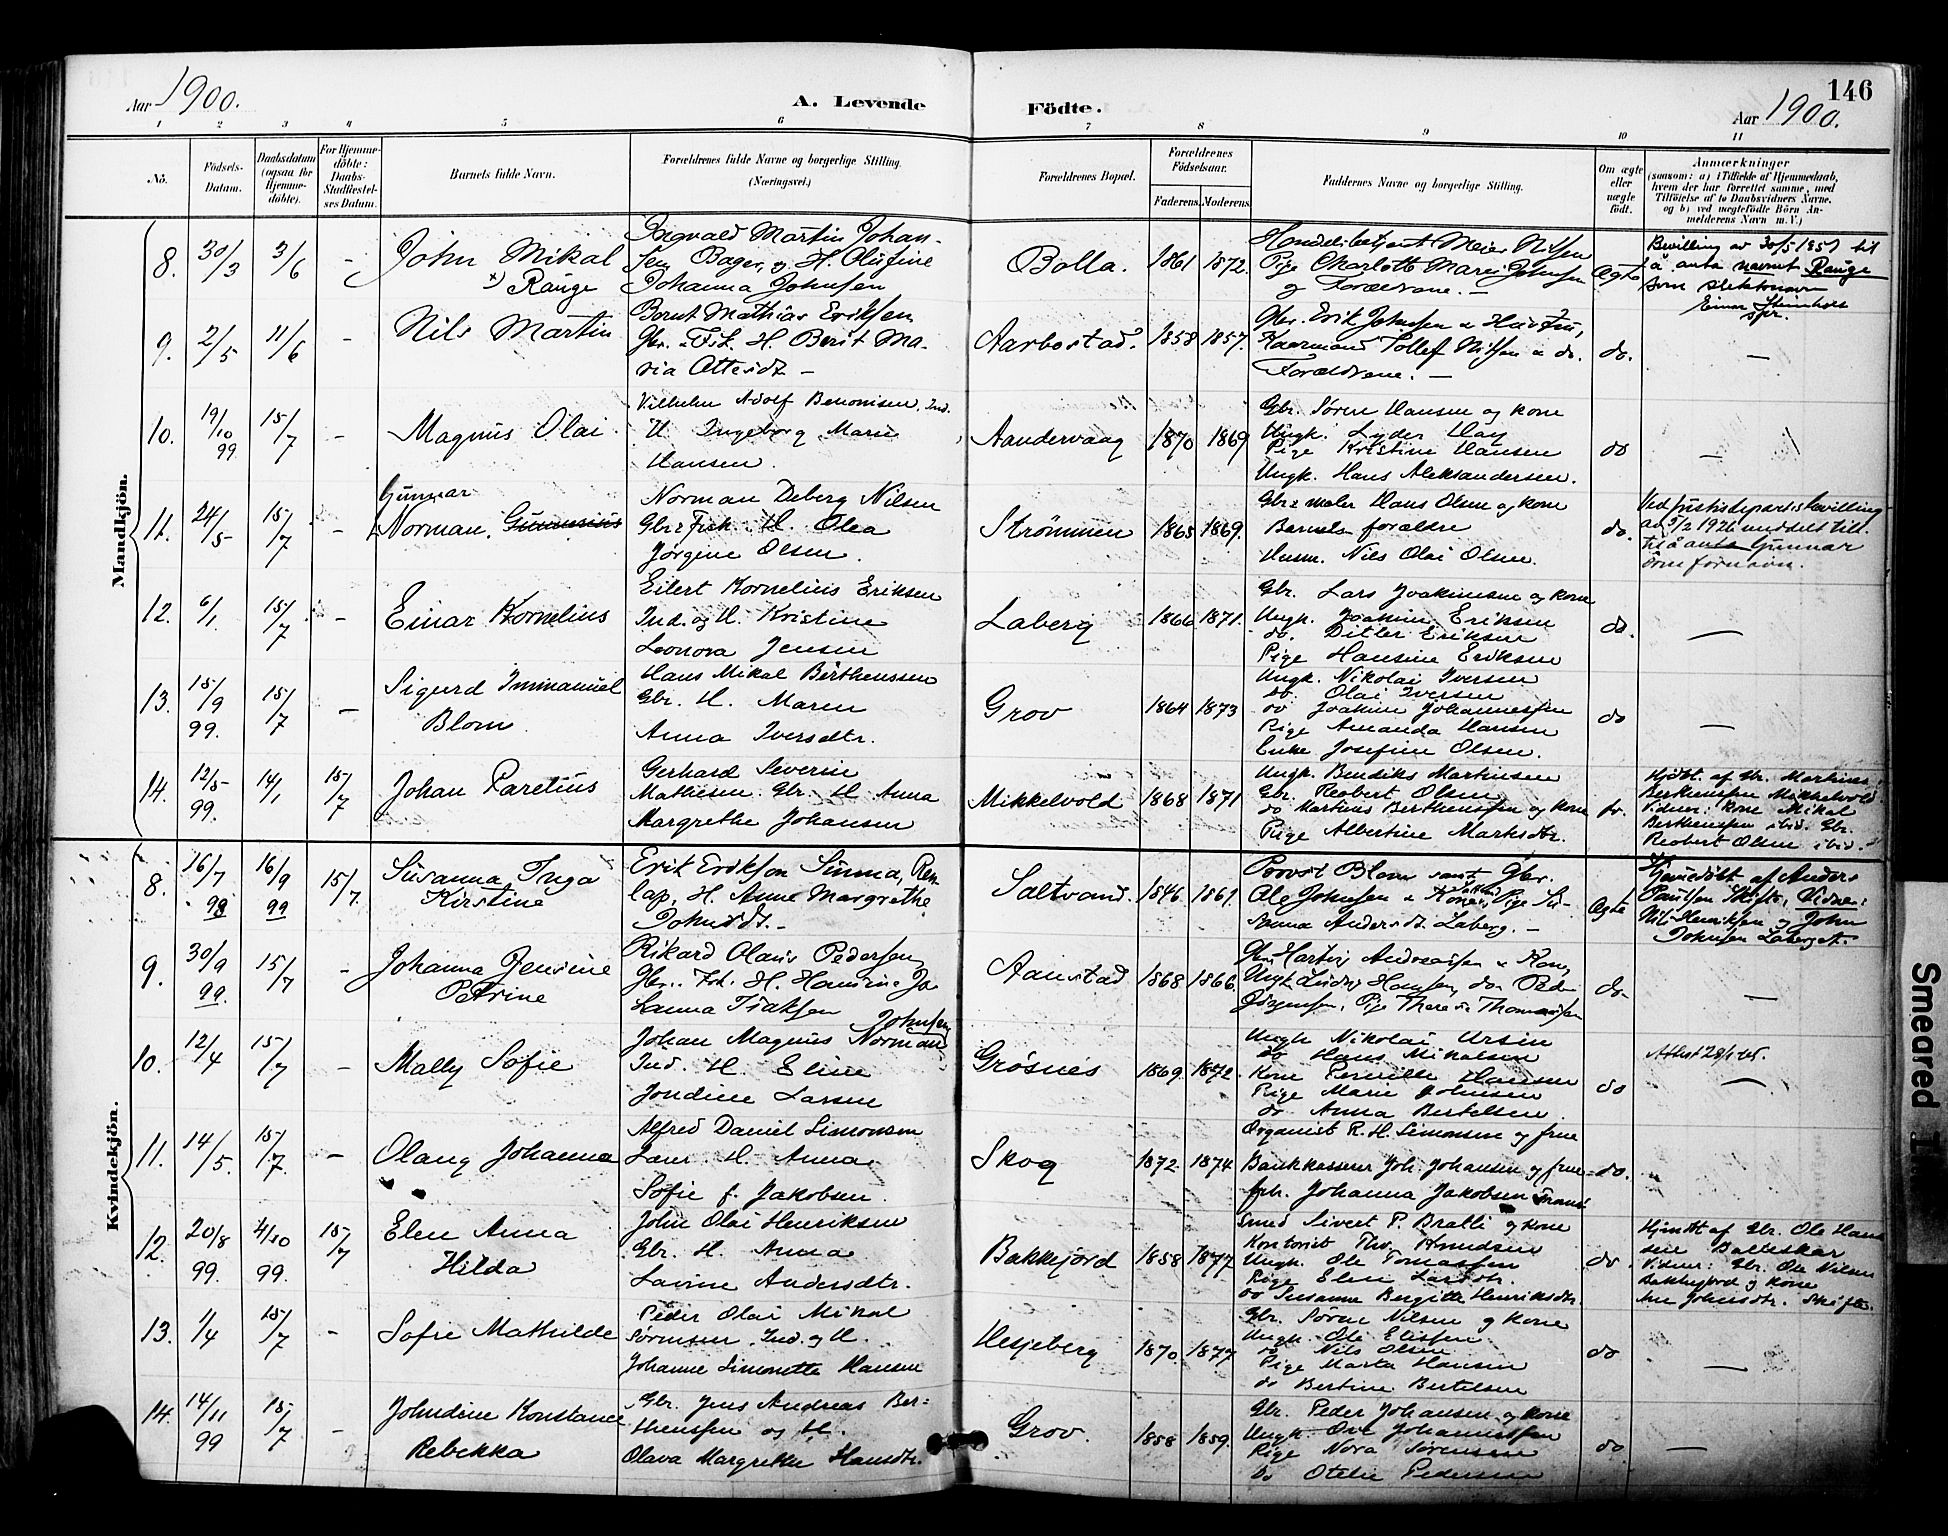 146
Aar 1900.
A. Levende Födte.
Aar 1900.
1 2 3 4 5 6 7 8 9 10 11
No.
Födsels-Datum.
Daabsdatum (ogsaa for Hjemme-döbte).
For Hjemme-döbte: Daabs-Stadfæstel-ses Datum.
Barnets fulde Navn.
Forældrenes fulde Navne og borgerlige Stilling. (Næringsvei.)
Forældrenes Bopæl.
Forældrenes Födselsaar.
Faderens. Moderens.
Faddernes Navne og borgerlige Stilling.
Om ægte eller uægte födt.
Anmærkninger
(saasom: a) i Tilfælde af Hjemmedaab, hvem der har forrettet samme, med Tilföielse af to Daabsvidners Navne, og b) ved uægtefödte Börn An-melderens Navn m. V.)
Mandkjön.
8. 30/3 3/6 - John Mikal
x) Rånge
Ingvald Martin Johan-
sen Bager, og H. Olufine
Johanna Johnsen
Bolla. 1861 1872.
Handelsbetjent Meier Nilsen
Pige Charlotte Marei Johnsen
og Forældrene. -
Ægte
Bevilling av 30/5 1951 til
å anta navnet Range
som slektsnavn
Einar Steinholt
spr.
9. 2/5 11/6 - Nils Martin
Bernt Mathias Eriksen
Gbr. & Fisk. H. Berit Ma-
ria Ottesdt -
Aarbostad. 1858 1857.
Gbr. Erik Johnsen & Hustru,
Kaarmand Tollef Nilsen & do.
Forældrene. -
do. -
10. 19/10 99 15/7 - Magnus Olai
Vilhelm Adolf Benonisen, Ind.
H. Ingeborg Marie
Hansen.
Aandervaag 1870 1869
Gbr. Sören Hansen og kone
Ungk. Lyder Hay
Pige Kristine Hansen
Ungk. Hans Aleksandersen.
do -
11. 24/5 15/7 - Gunnar
Norman, Gunnerius
Norman Deberg Nilsen
Gbr & Fisk. H. Olea
Jörgine Olsen.
Strømmen 1865 1869.
Gbr & maler Hans Olsen og kone
Barnets forældre
Husm. Nils Olai Olsen.
do.
Ved justisdepartis bevilling
av 5/2 1926 meddelt till.
til å anta Gunnar
som fornavn.
12. 6/1 15/7 - Einar Kornelius
Eilert Kornelius Eriksen
Ind. og H. Kristine
Leonora Jensen
Laberg 1866 1871.
Gbr. Lars Joakimsen og kone
Ungk. Joakim Eriksen
do. Ditlev Eriksen
Pige Hansine Eriksen
do. -
13. 15/9 99. 15/7 - Sigurd Immanuel
Blom
Hans Mikal Berthenssen
Gbr. H. Maren
Anna Iversdtr.
Grov 1864 1873
Ungk. Nikolai Iversen
do. Olai Iversen
do Joakim Johannessen
Pige Amanda Hansen
Enke Josefine Olsen.
do -
14. 12/5 99. 14/1 15/7 Johan Paretius
Gerhard Severin
Mathisen Gbr. H Anna
Margrethe Johansen
Mikkelvold 1868 1871
Ungk. Bendiks Martinsen
Gbr. Reobert Olsen
do Martius Berthenssen og kone
Pige Albertine Marksdtr.
do.
Hjdbt. af Gbr. Martinus
Berthenssen Mikkelvold
Vidner: Kone Mikal
Berthenssen ibid. Gbr.
Reobert Olsen ibid.
Kvindekjön.
8. 16/7 98 16/9 99 15/7. Susanna Inga
Kirstine
Erik Erikson Sinma, Ren-
lap, H. Anne Margrethe
Johnsdt.-
Saltvand. 1846 1861.
Provst Blom samt Gbr.
Ole Johnsen & Kone, Pige Su-
sanna Andersdt. Laberg. -
Ægte
Hjemedöbt af Anders
Paulsen Skifte, Vidner:
Nils Henriksen og John
Johnsen Laberget.
9. 30/9 99. 15/7 - Johanna Jensine
Petrine
Rikard Olaus Pedersen
Gbr. Fisk. H. Hansine Jo
hanna Isaksen
Aanstad 1868 1866.
Gbr. Hartvig Andreassen & Kone,
Ungk. Ludvig Hansen, do Peder
Jörgensen, Pige Therese Thomassen
do. -
10. 12/4 15/7 - Mally Sofie
Johan Magnus Norman Johnsen
Ind. H. Eline
Jondine Larsen
Grøsnes 1869. 1872.
Ungk Nikolai Ursin
do Hans Mikalsen
Kone Pernille Hansen
Pige Marie Johnsen
do. Anna Bertelsen.
do
Attest 28/1 45.
-
11. 14/5. 15/7. - Olaug Johanna
Alfred Daniel Simonsen
Lærer. H. Anna
Sofie f. Jakobsen.
Skog 1872. 1874
Organist R. H. Simonsen og frue
Bankkasserer Joh. Johansen og frue
frk. Johanna Jakobsen Tromsö
do. -
12. 20/8 99. 4/10 99. 15/7 Elen Anna
Hilda
John Olai Henriksen
Gbr. H. Anna
Lavine Andersdtr.
Bakkejord 1858 1877
Smed Sivert P. Bratli og kone
Kontorist Thv. Knudsen
Ungk. Ole Tomassen
Pige Elen Larsdtr.
do Susanna Bergitte Henriksdtr.
do.
Hjemdbt af Gbr. Ole Han
sen Balteskar
Vidner: Gbr. Ole Nilsen
Bakkejord og kone
Ane Johnsdtr. Skifte.
13. 1/4 15/7 - Sofie Mathilde
Peder Olai Mikal
Sørensen, Ind. og H.
Johanne Simonette Hansen
Hesjeberg 1870. 1877
Gbr. Sørne Nilsen og kone
Ungk. Ole Elissen
do Nils Olsen
Pige Marta Hansen
do Bertine Bertelsen
do -
14. 14/11 99 15/7 - Johndine Konstance
Rebekka
Gbr. Jens Andreas Ber-
thenssen og H.
Olava Margrethe Hansdtr.
Grov. 1858 1859.
Gbr. Peder Johansen og kone
Ungk. Ove Johannessen
Pige Nora Sørensen
Do Otelie Pedersen
do -
Smeared